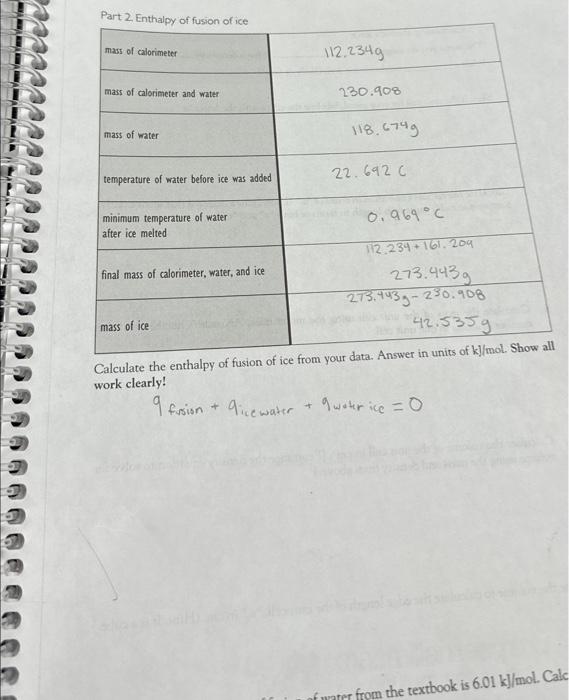 Part 2. Enthalpy of fusion of ice
mass of calorimeter 112.234g
mass of calorimeter and water 230.908
mass of water 118.674g
temperature of water before ice was added 22.692 C
minimum temperature of water
after ice melted 0.969°C
112.234+161.209
final mass of calorimeter, water, and ice 273.443g
273.443g-230.908
mass of ice 42.535g
Calculate the enthalpy of fusion of ice from your data. Answer in units of kJ/mol. Show all
work clearly!
q fusion + q ice water + q water ice = 0
of water from the textbook is 6.01 kJ/mol. Calc